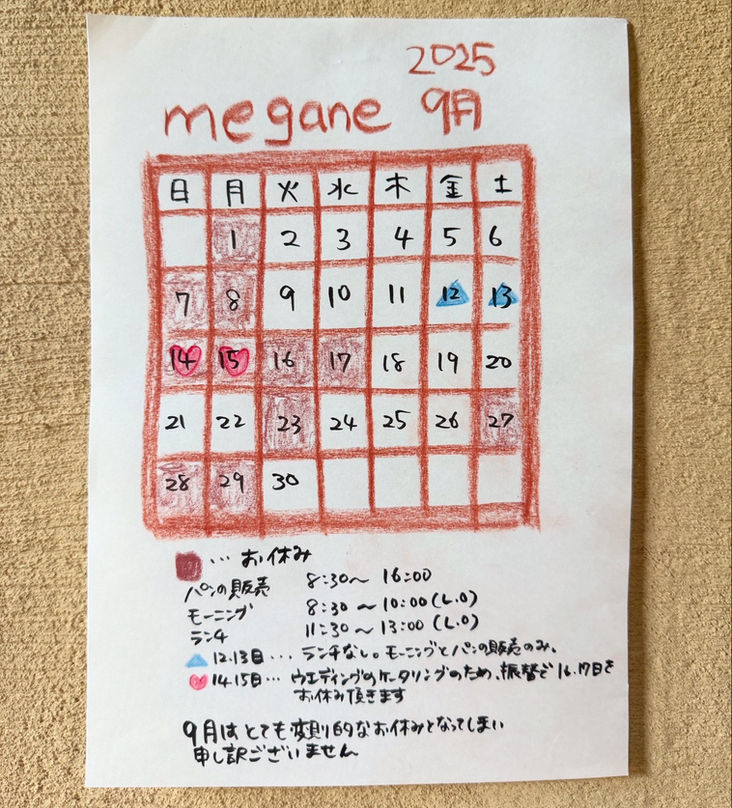 2025
megane 9月
日 月 火 水 木 金 土
1 2 3 4 5 6
7 8 9 10 11 12 13
14 15 16 17 18 19 20
21 22 23 24 25 26 27
28 29 30
… お休み
パンの販売 8:30〜 16:00
モーニング 8:30 〜10:00(L.O)
ランチ 11:30〜13:00(L.O)
12.13日 … ランチなし。モーニングとパンの販売のみ。
14.15日… ウエディングのケータリングのため、振替で16.17日を
お休み頂きます
9月はとても変則的なお休みとなってしまい
申し訳ございません